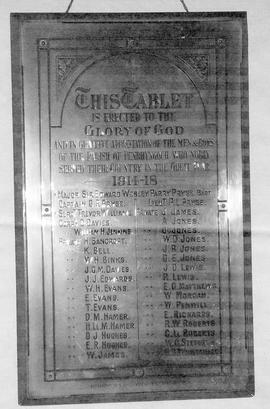 THIS TABLET
IS ERECTED TO THE
GLORY OF GOD
AND IN GRATEFUL APPRECIATION OF THE MEN & BOYS
OF THE PARISH OF WHO NOBLY
SERVED THEIR COUNTRY IN THE GREAT WAR
1914-18
MAJOR SIR EDWARD WESLEY PARRY PRYSE, BART
CAPTAIN G.R. PRYSE. LIEUT. R.L. PRYSE.
SERGT TREVOR WILLIAMS. PRIVATE J. JAMES.
CORPL D. DAVIES. A. JONES.
WILLIAM H. JENKINS JONES.
PRIVATE H. BANCROFT. W.D. JONES.
K. BELL. J.R. JONES.
W.H. BINKS. D.E. JONES.
J.G.M. DAVIES. J.D. LEWIS.
J.J. EDWARDS. R. LEWIS.
W.H. EVANS. E.O. MATTHEWS.
E. EVANS. W. MORGAN.
T. EVANS. W.
D.M. HAMER. E. RICHARDS.
H.Ll.M. HAMER. R.W. ROBERTS
D.J. HUGHES. C.Ll. ROBERTS
E.R. HUGHES. W.G.
W. JAMES.